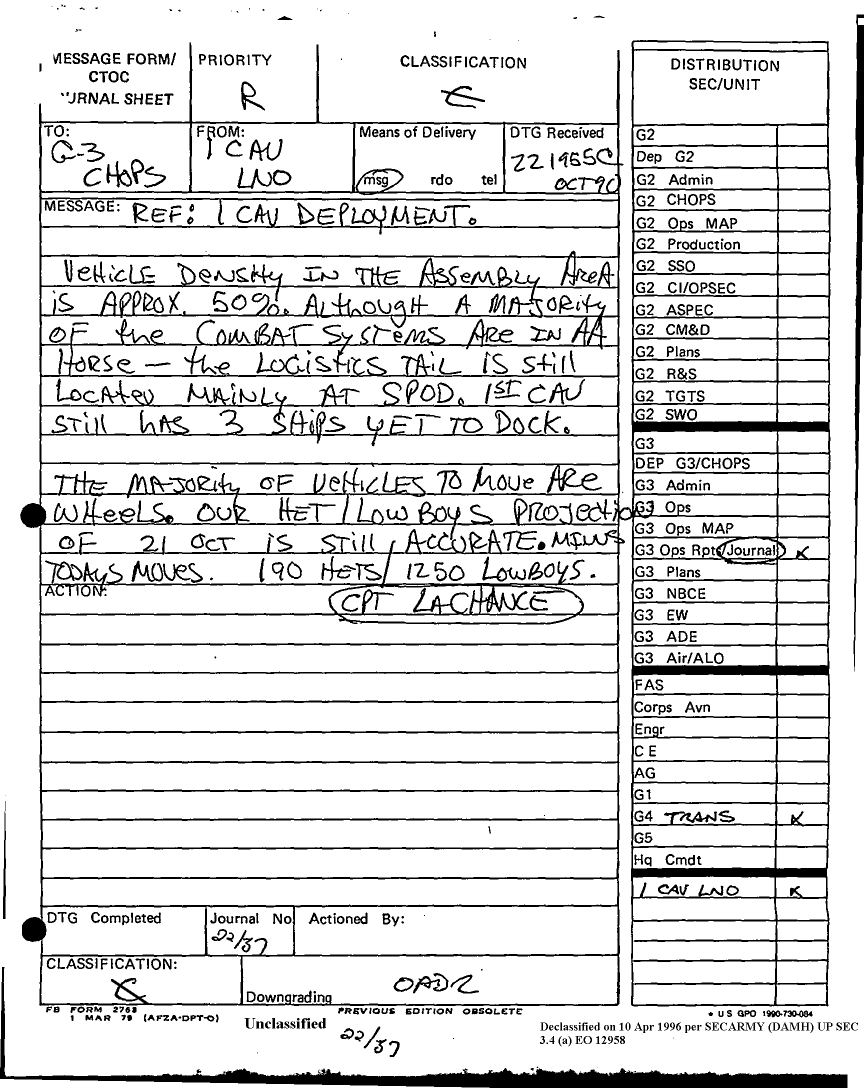 MESSAGE FORM/
CTOC
JOURNAL SHEET
PRIORITY
R
CLASSIFICATION
C
TO:
G-3
CHOPS
FROM:
1 CAV
LNO
Means of Delivery
msg rdo tel
DTG Received
221955C
OCT 90
MESSAGE: REF: 1 CAV DEPLOYMENT.
VEHICLE DENSITY IN THE ASSEMBLY AREA
IS APPROX. 50%. ALTHOUGH A MAJORITY
OF the COMBAT SYSTEMS ARE IN AA
HORSE — the LOGISTICS TAIL IS STILL
LOCATED MAINLY AT SPOD. 1ST CAV
STILL HAS 3 SHIPS YET TO DOCK.
THE MAJORITY OF VEHICLES TO MOVE ARE
WHEELS. OUR HET/LOWBOYS PROJECTION
OF 21 OCT IS STILL ACCURATE. MINUS
TODAYS MOVES. 190 HETS/1250 LOWBOYS.
ACTION:
CPT LACHANCE
DTG Completed
Journal No
22/37
Actioned By:
CLASSIFICATION:
C
Downgrading
OADR
FB FORM 2768
1 MAR 79 (AFZA-DPT-O)
PREVIOUS EDITION OBSOLETE
Unclassified
22/37
DISTRIBUTION
SEC/UNIT
G2
Dep G2
G2 Admin
G2 CHOPS
G2 Ops MAP
G2 Production
G2 SSO
G2 CI/OPSEC
G2 ASPEC
G2 CM&D
G2 Plans
G2 R&S
G2 TGTS
G2 SWO
G3
DEP G3/CHOPS
G3 Admin
G3 Ops
G3 Ops MAP
G3 Ops Rpts/Journal X
G3 Plans
G3 NBCE
G3 EW
G3 ADE
G3 Air/ALO
FAS
Corps Avn
Engr
C E
AG
G1
G4 TRANS X
G5
Hq Cmdt
1 CAV LNO X
* US GPO 1990-730-084
Declassified on 10 Apr 1996 per SECARMY (DAMH) UP SEC
3.4 (a) EO 12958